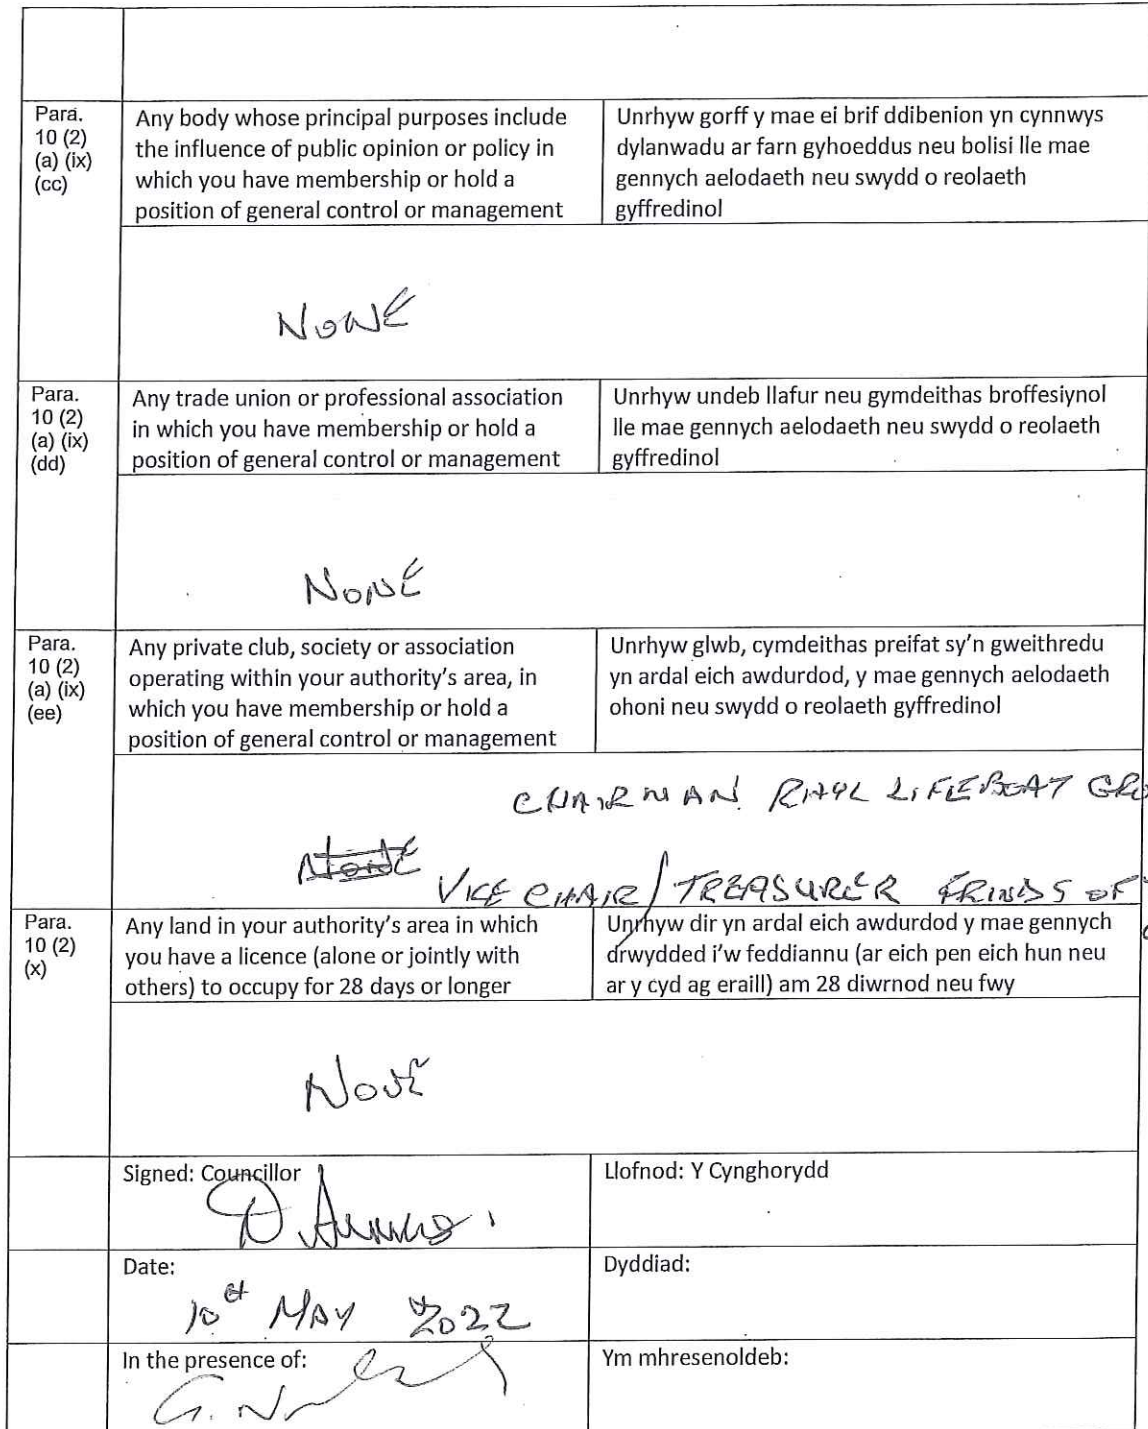 Para.
10 (2)
(a) (ix)
(cc)
Any body whose principal purposes include
the influence of public opinion or policy in
which you have membership or hold a
position of general control or management
Unrhyw gorff y mae ei brif ddibenion yn cynnwys
dylanwadu ar farn gyhoeddus neu bolisi lle mae
gennych aelodaeth neu swydd o reolaeth
gyffredinol
NONE
Para.
10 (2)
(a) (ix)
(dd)
Any trade union or professional association
in which you have membership or hold a
position of general control or management
Unrhyw undeb llafur neu gymdeithas broffesiynol
lle mae gennych aelodaeth neu swydd o reolaeth
gyffredinol
NONE
Para.
10 (2)
(a) (ix)
(ee)
Any private club, society or association
operating within your authority's area, in
which you have membership or hold a
position of general control or management
Unrhyw glwb, cymdeithas preifat sy'n gweithredu
yn ardal eich awdurdod, y mae gennych aelodaeth
ohoni neu swydd o reolaeth gyffredinol
CHAIRMAN RHYL LIFEBOAT
NONE
VICE CHAIR/TREASURER FRINDS OF
Para.
10 (2)
(x)
Any land in your authority's area in which
you have a licence (alone or jointly with
others) to occupy for 28 days or longer
Unrhyw dir yn ardal eich awdurdod y mae gennych
drwydded i'w feddiannu (ar eich pen eich hun neu
ar y cyd ag eraill) am 28 diwrnod neu fwy
NONE
Signed: Councillor
Llofnod: Y Cynghorydd
D.
Date:
Dyddiad:
10th MAY 2022
In the presence of:
Ym mhresenoldeb:
G.